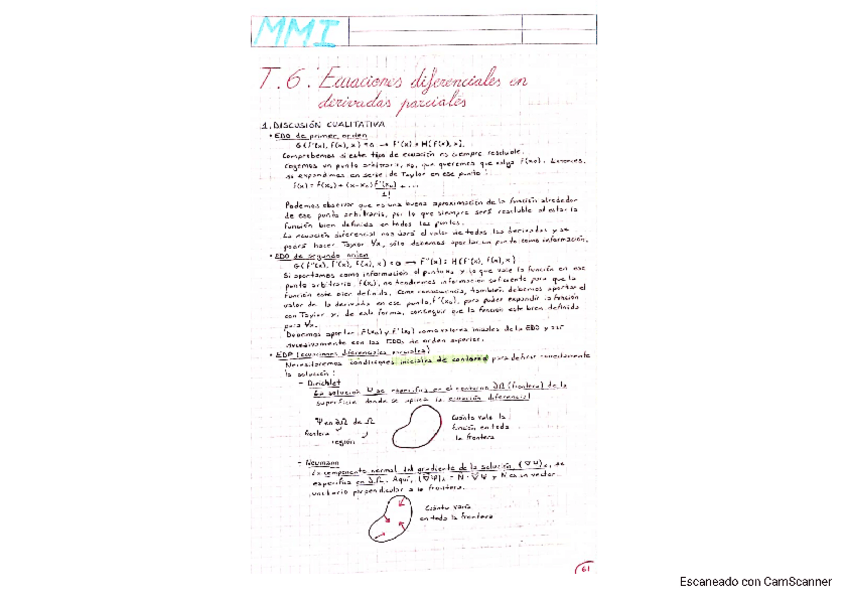 MMI
T.6. Ecuaciones diferenciales en
derivadas parciales
1. DISCUSIÓN CUALITATIVA
• EDO de primer orden
G(f'(x), f(x), x) = 0 → f'(x) = H(f(x), x).
Comprobemos si este tipo de ecuación es siempre resoluble.
Cogemos un punto arbitrario, x₀, que queremos que valga f(x₀). Entonces,
lo expandimos en serie de Taylor en ese punto:
f(x) = f(x₀) + (x-x₀) f'(x₀)/1! + ...
Podemos observar que es una buena aproximación de la función alrededor
de ese punto arbitrario, por lo que siempre será resoluble al estar la
función bien definida en todos los puntos.
La ecuación diferencial nos dará el valor de todas las derivadas y se
podrá hacer Taylor ∀x, sólo debemos aportar un punto como información.
• EDO de segundo orden
G(f''(x), f'(x), f(x), x) = 0 → f''(x) = H(f'(x), f(x), x)
Si aportamos como información el punto x₀ y lo que vale la función en ese
punto arbitrario, f(x₀), no tendremos información suficiente para que la
función esté bien definida. Como consecuencia, también debemos aportar el
valor de la derivada en ese punto, f'(x₀), para poder expandir la función
con Taylor y, de esta forma, conseguir que la función esté bien definida
para ∀x.
Debemos aportar f(x₀) y f'(x₀) como valores iniciales de la EDO y así
sucesivamente con las EDOs de orden superior.
• EDP (ecuaciones diferenciales parciales)
Necesitaremos condiciones iniciales de contorno para definir correctamente
la solución:
- Dirichlet
La solución Ψ se especifica en el contorno ∂Ω (frontera) de la
superficie donde se aplica la ecuación diferencial
Ψ en ∂Ω de Ω
frontera
región
Cuánto vale la
función en toda
la frontera
- Neumann
La componente normal del gradiente de la solución, (∇Ψ)ₙ, se
especifica en ∂Ω. Aquí, (∇Ψ)ₙ = N · ∇Ψ y N es un vector
unitario perpendicular a la frontera.
Cuánto varía
en toda la frontera
61
Escaneado con CamScanner